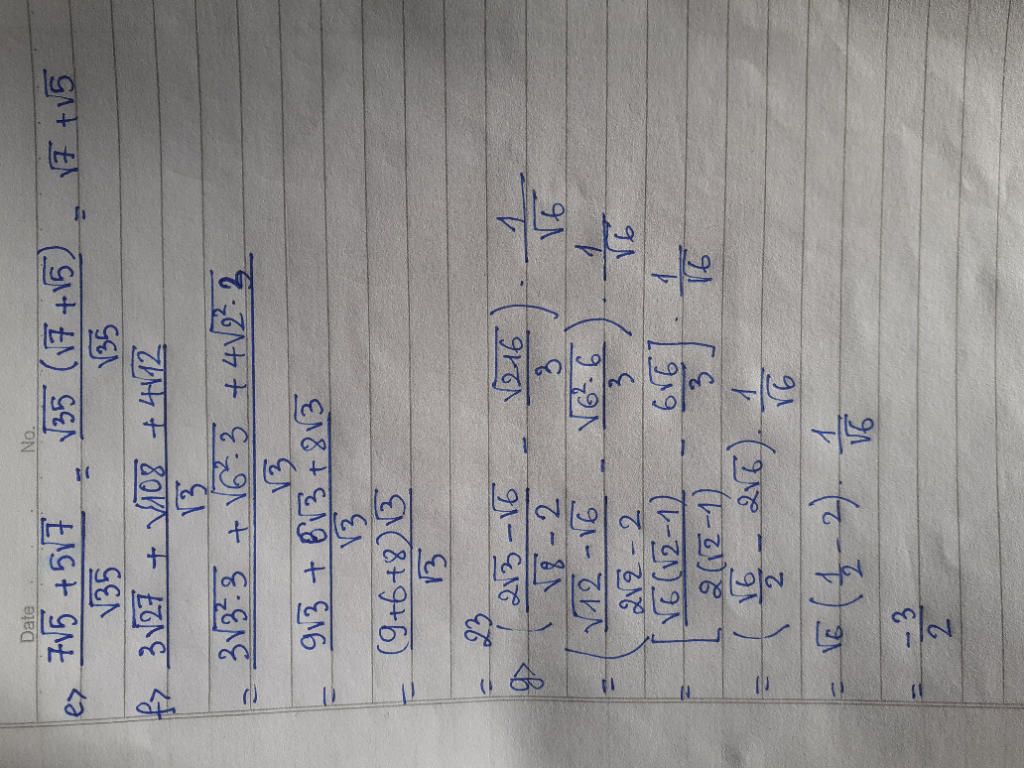 Date No.
e> (7√5 + 5√7)/√35 = (√35 (√7 + √5))/√35 = √7 + √5
f> (3√27 + √108 + 4√12)/√3
= (3√(3²·3) + √(6²·3) + 4√(2²·3))/√3
= (9√3 + 6√3 + 8√3)/√3
= ((9+6+8)√3)/√3
= 23
g> ((2√3 - √6)/(√8 - 2) - √216/3) · 1/√6
= ((√12 - √6)/(2√2 - 2) - √(6²·6)/3) · 1/√6
= [(√6(√2-1))/(2(√2-1)) - 6√6/3] · 1/√6
= (√6/2 - 2√6) · 1/√6
= √6 (1/2 - 2) · 1/√6
= -3/2